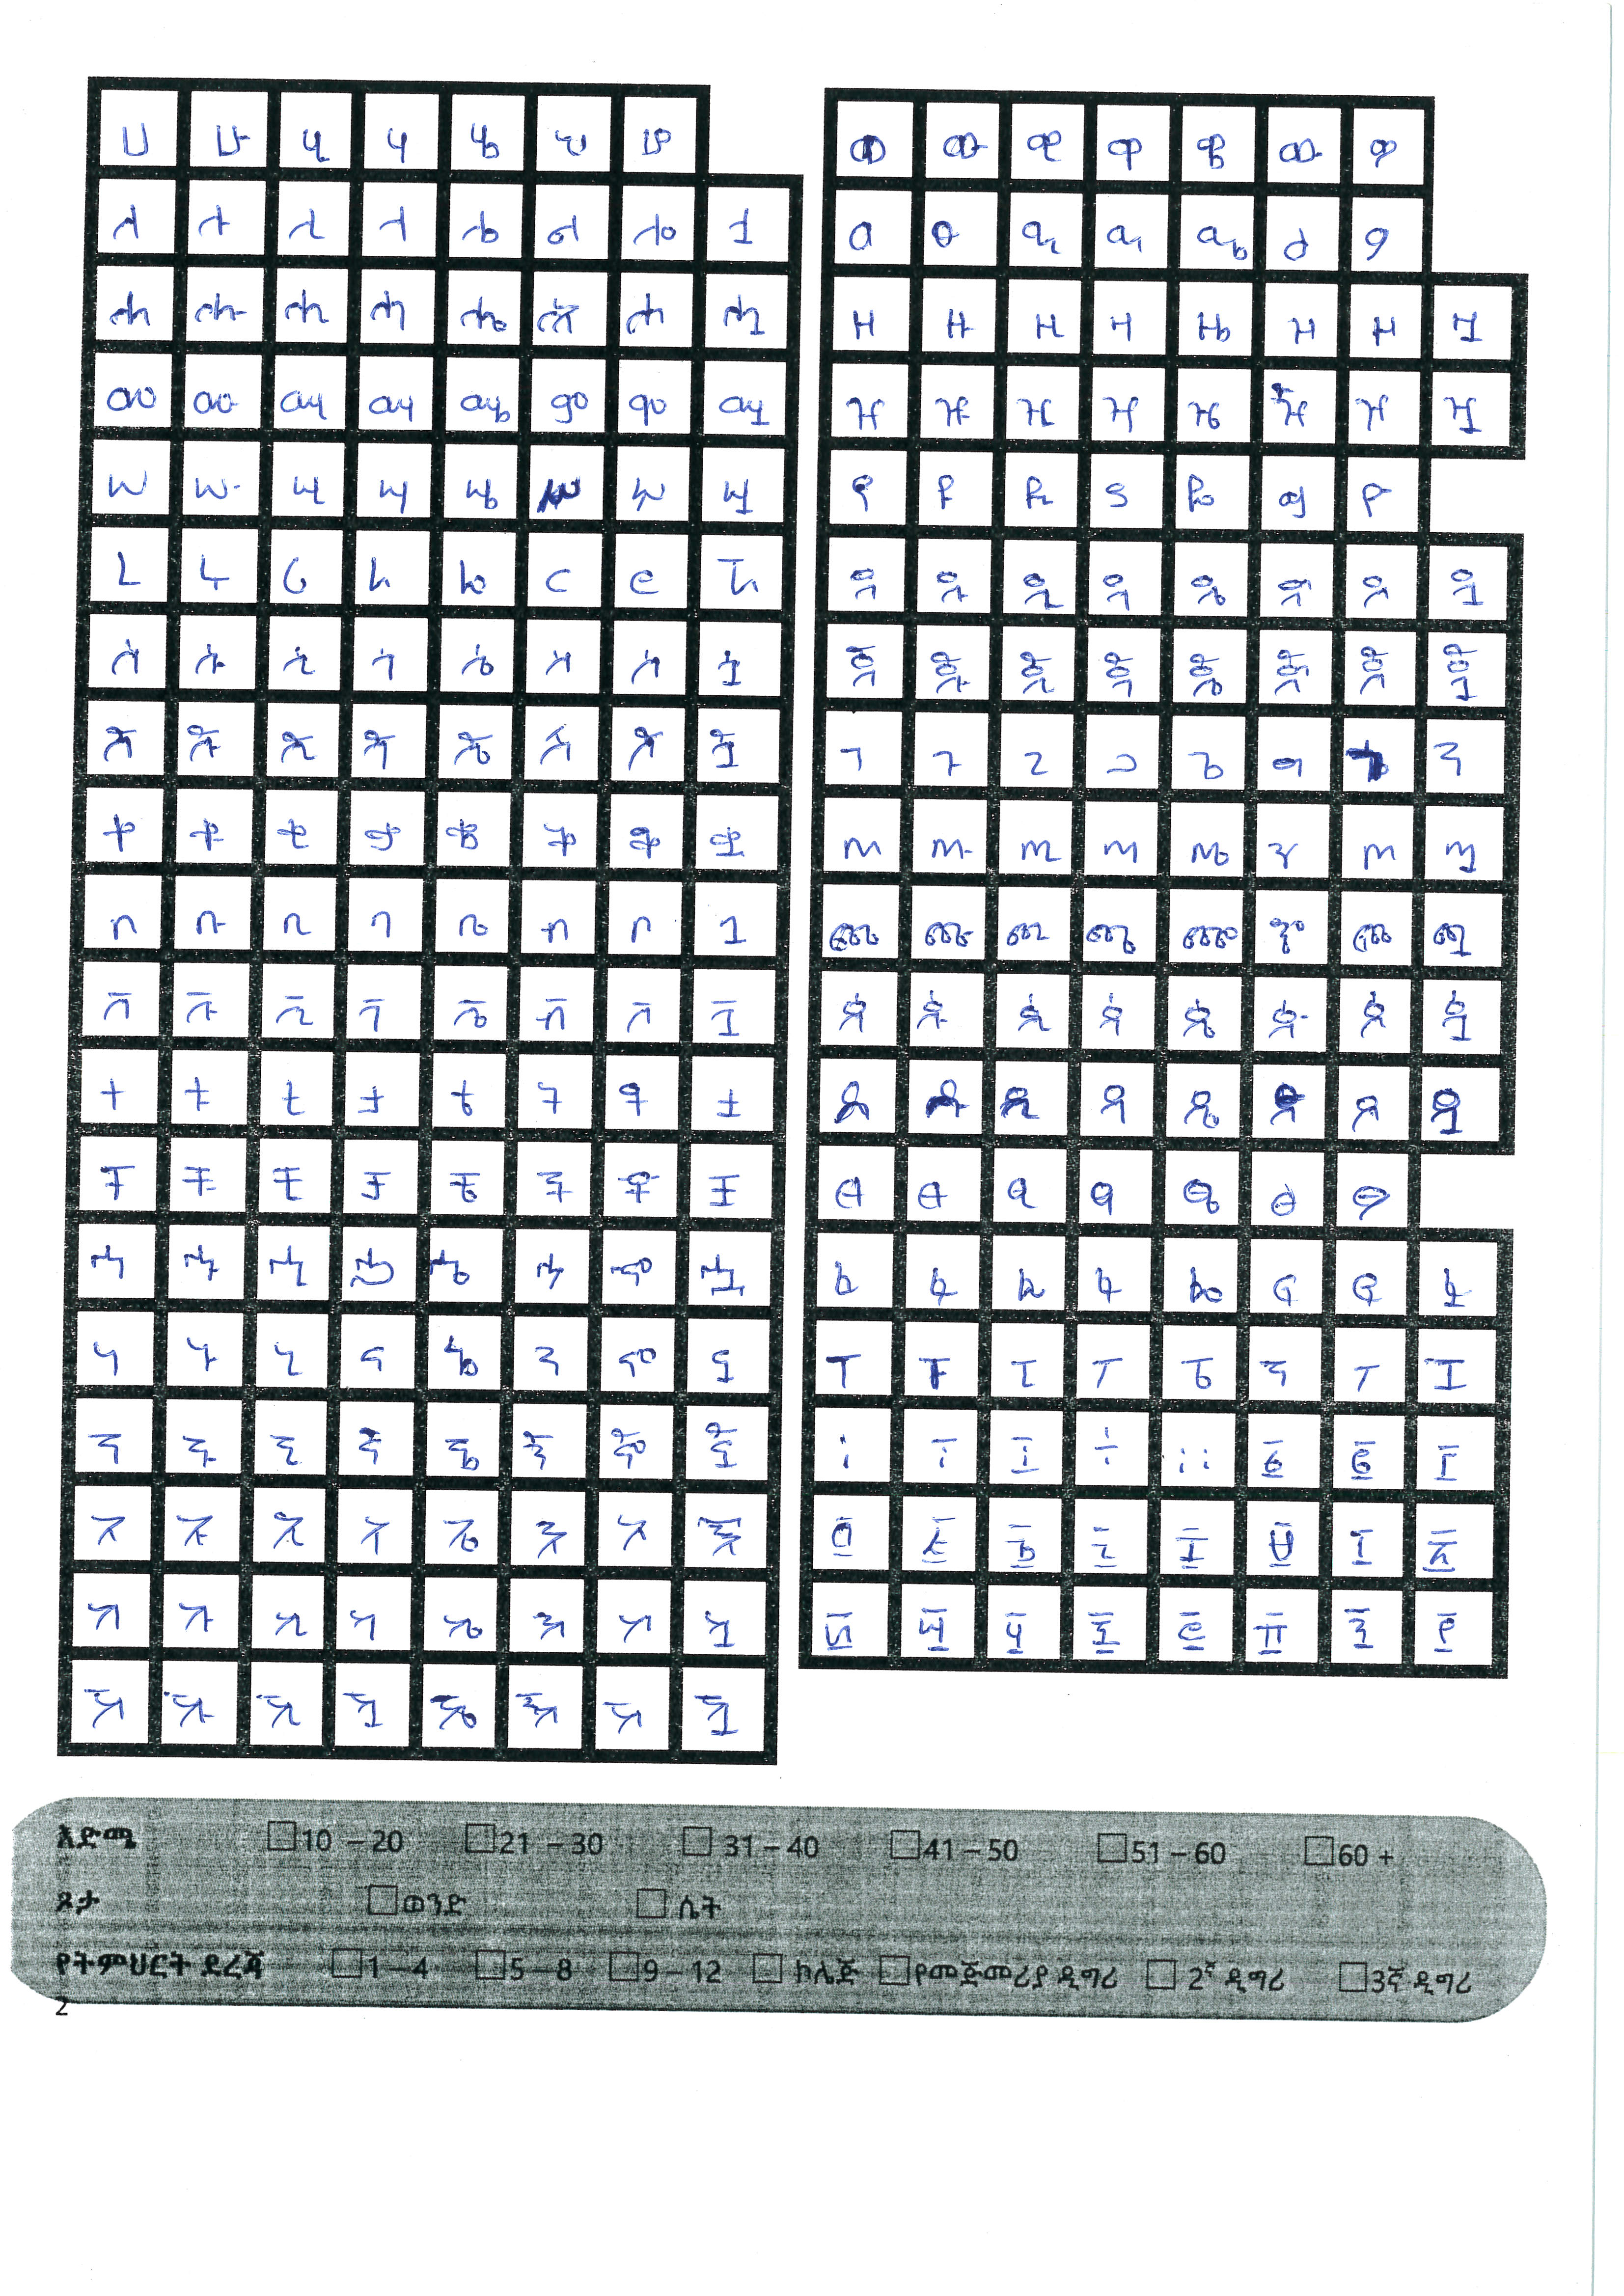 ሀ ሁ ሂ ሃ ሄ ህ ሆ
ለ ሉ ሊ ላ ሌ ል ሎ ሏ
ሐ ሑ ሒ ሓ ሔ ሕ ሖ ሗ
መ ሙ ሚ ማ ሜ ም ሞ ሟ
ሠ ሡ ሢ ሣ ሤ ሥ ሦ ሧ
ረ ሩ ሪ ራ ሬ ር ሮ ሯ
ሰ ሱ ሲ ሳ ሴ ስ ሶ ሷ
ሸ ሹ ሺ ሻ ሼ ሽ ሾ ሿ
ቀ ቁ ቂ ቃ ቄ ቅ ቆ ቋ
በ ቡ ቢ ባ ቤ ብ ቦ ቧ
ቨ ቩ ቪ ቫ ቬ ቭ ቮ ቯ
ተ ቱ ቲ ታ ቴ ት ቶ ቷ
ቸ ቹ ቺ ቻ ቼ ች ቾ ቿ
ኀ ኁ ኂ ኃ ኄ ኅ ኆ ኋ
ነ ኑ ኒ ና ኔ ን ኖ ኗ
ኘ ኙ ኚ ኛ ኜ ኝ ኞ ኟ
አ ኡ ኢ ኣ ኤ እ ኦ ኧ
ከ ኩ ኪ ካ ኬ ክ ኮ ኳ
ኸ ኹ ኺ ኻ ኼ ኽ ኾ ዃ
ወ ዉ ዊ ዋ ዌ ው ዎ
ዐ ዑ ዒ ዓ ዔ ዕ ዖ
ዘ ዙ ዚ ዛ ዜ ዝ ዞ ዟ
ዠ ዡ ዢ ዣ ዤ ዥ ዦ ዧ
የ ዩ ዪ ያ ዬ ይ ዮ
ደ ዱ ዲ ዳ ዴ ድ ዶ ዷ
ጀ ጁ ጂ ጃ ጄ ጅ ጆ ጇ
ገ ጉ ጊ ጋ ጌ ግ ጓ
ጠ ጡ ጢ ጣ ጤ ጥ ጦ ጧ
ጨ ጩ ጪ ጫ ጬ ጭ ጮ ጯ
ጰ ጱ ጲ ጳ ጴ ጵ ጶ ጷ
ጸ ጹ ጺ ጻ ጼ ጽ ጾ ጿ
ፀ ፁ ፂ ፃ ፄ ፅ ፆ
ፈ ፉ ፊ ፋ ፌ ፍ ፎ ፏ
ፐ ፑ ፒ ፓ ፔ ፕ ፖ ፗ
፡ ፣ ፤ ፥ ። ፩ ፪ ፫
፬ ፭ ፮ ፯ ፰ ፱ ፲ ፳
፴ ፵ ፶ ፷ ፸ ፹ ፺ ፻
እድሜ 10 – 20 21 – 30 31 – 40 41 – 50 51 – 60 60 +
ጾታ ወንድ ሴት
የትምህርት ደረጃ 1 – 4 5 – 8 9 – 12 ኮሌጅ የመጀመሪያ ዲግሪ 2ኛ ዲግሪ 3ኛ ዲግሪ
2